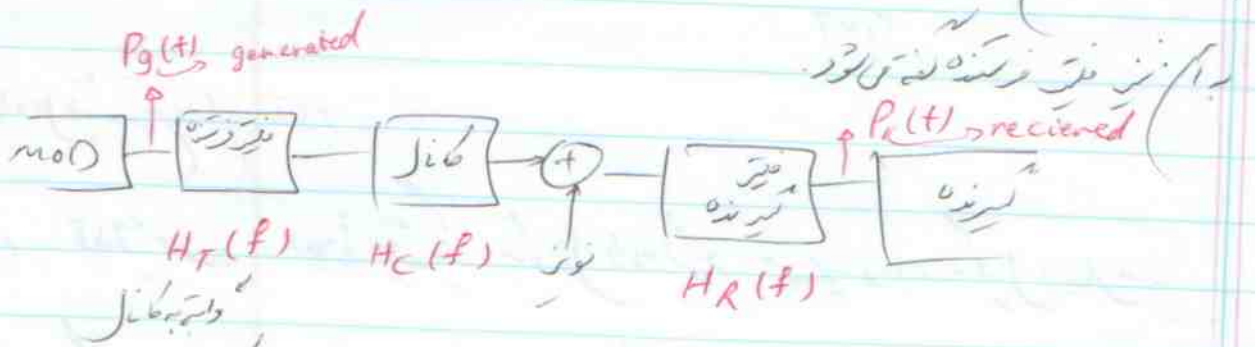 Pg(t) → generated
به آن نیز فیلتر فرستنده گفته می‌شود.
Pr(t) → reciened
MOD
فیلتر فرستنده
کانال
+
فیلتر گیرنده
گیرنده
H_T(f)
H_C(f)
نویز
H_R(f)
وابسته به کانال